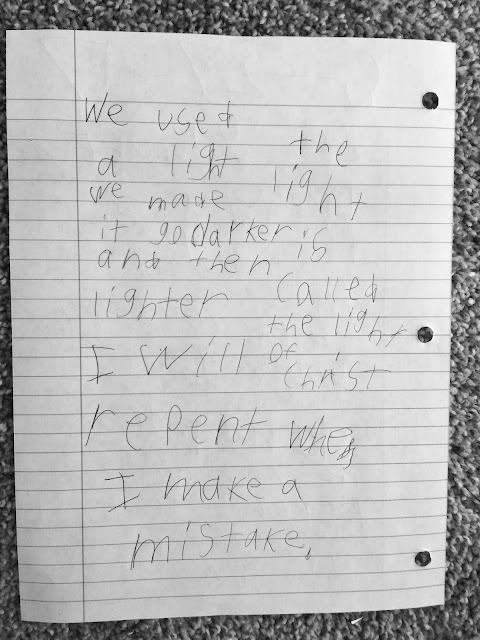 We used
a light
we made
it go darker
and then
lighter
the
light
is
called
the light
of
Christ
I will
repent when
I make a
mistake.